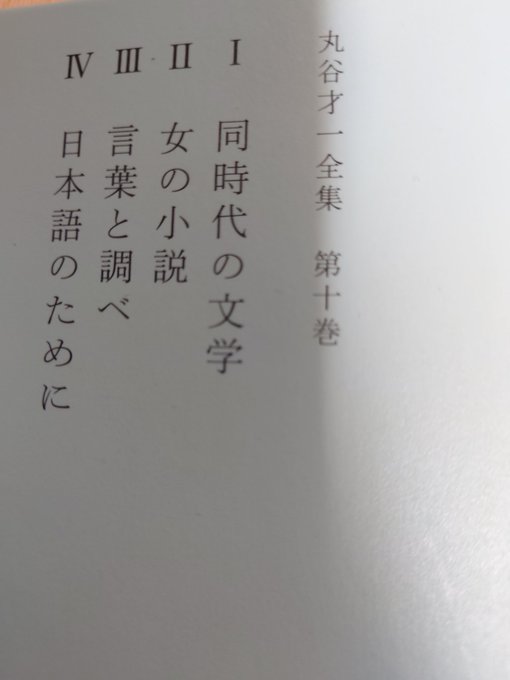 丸谷才一全集　第十巻
Ⅰ　同時代の文学
Ⅱ　女の小説
Ⅲ　言葉と調べ
Ⅳ　日本語のために